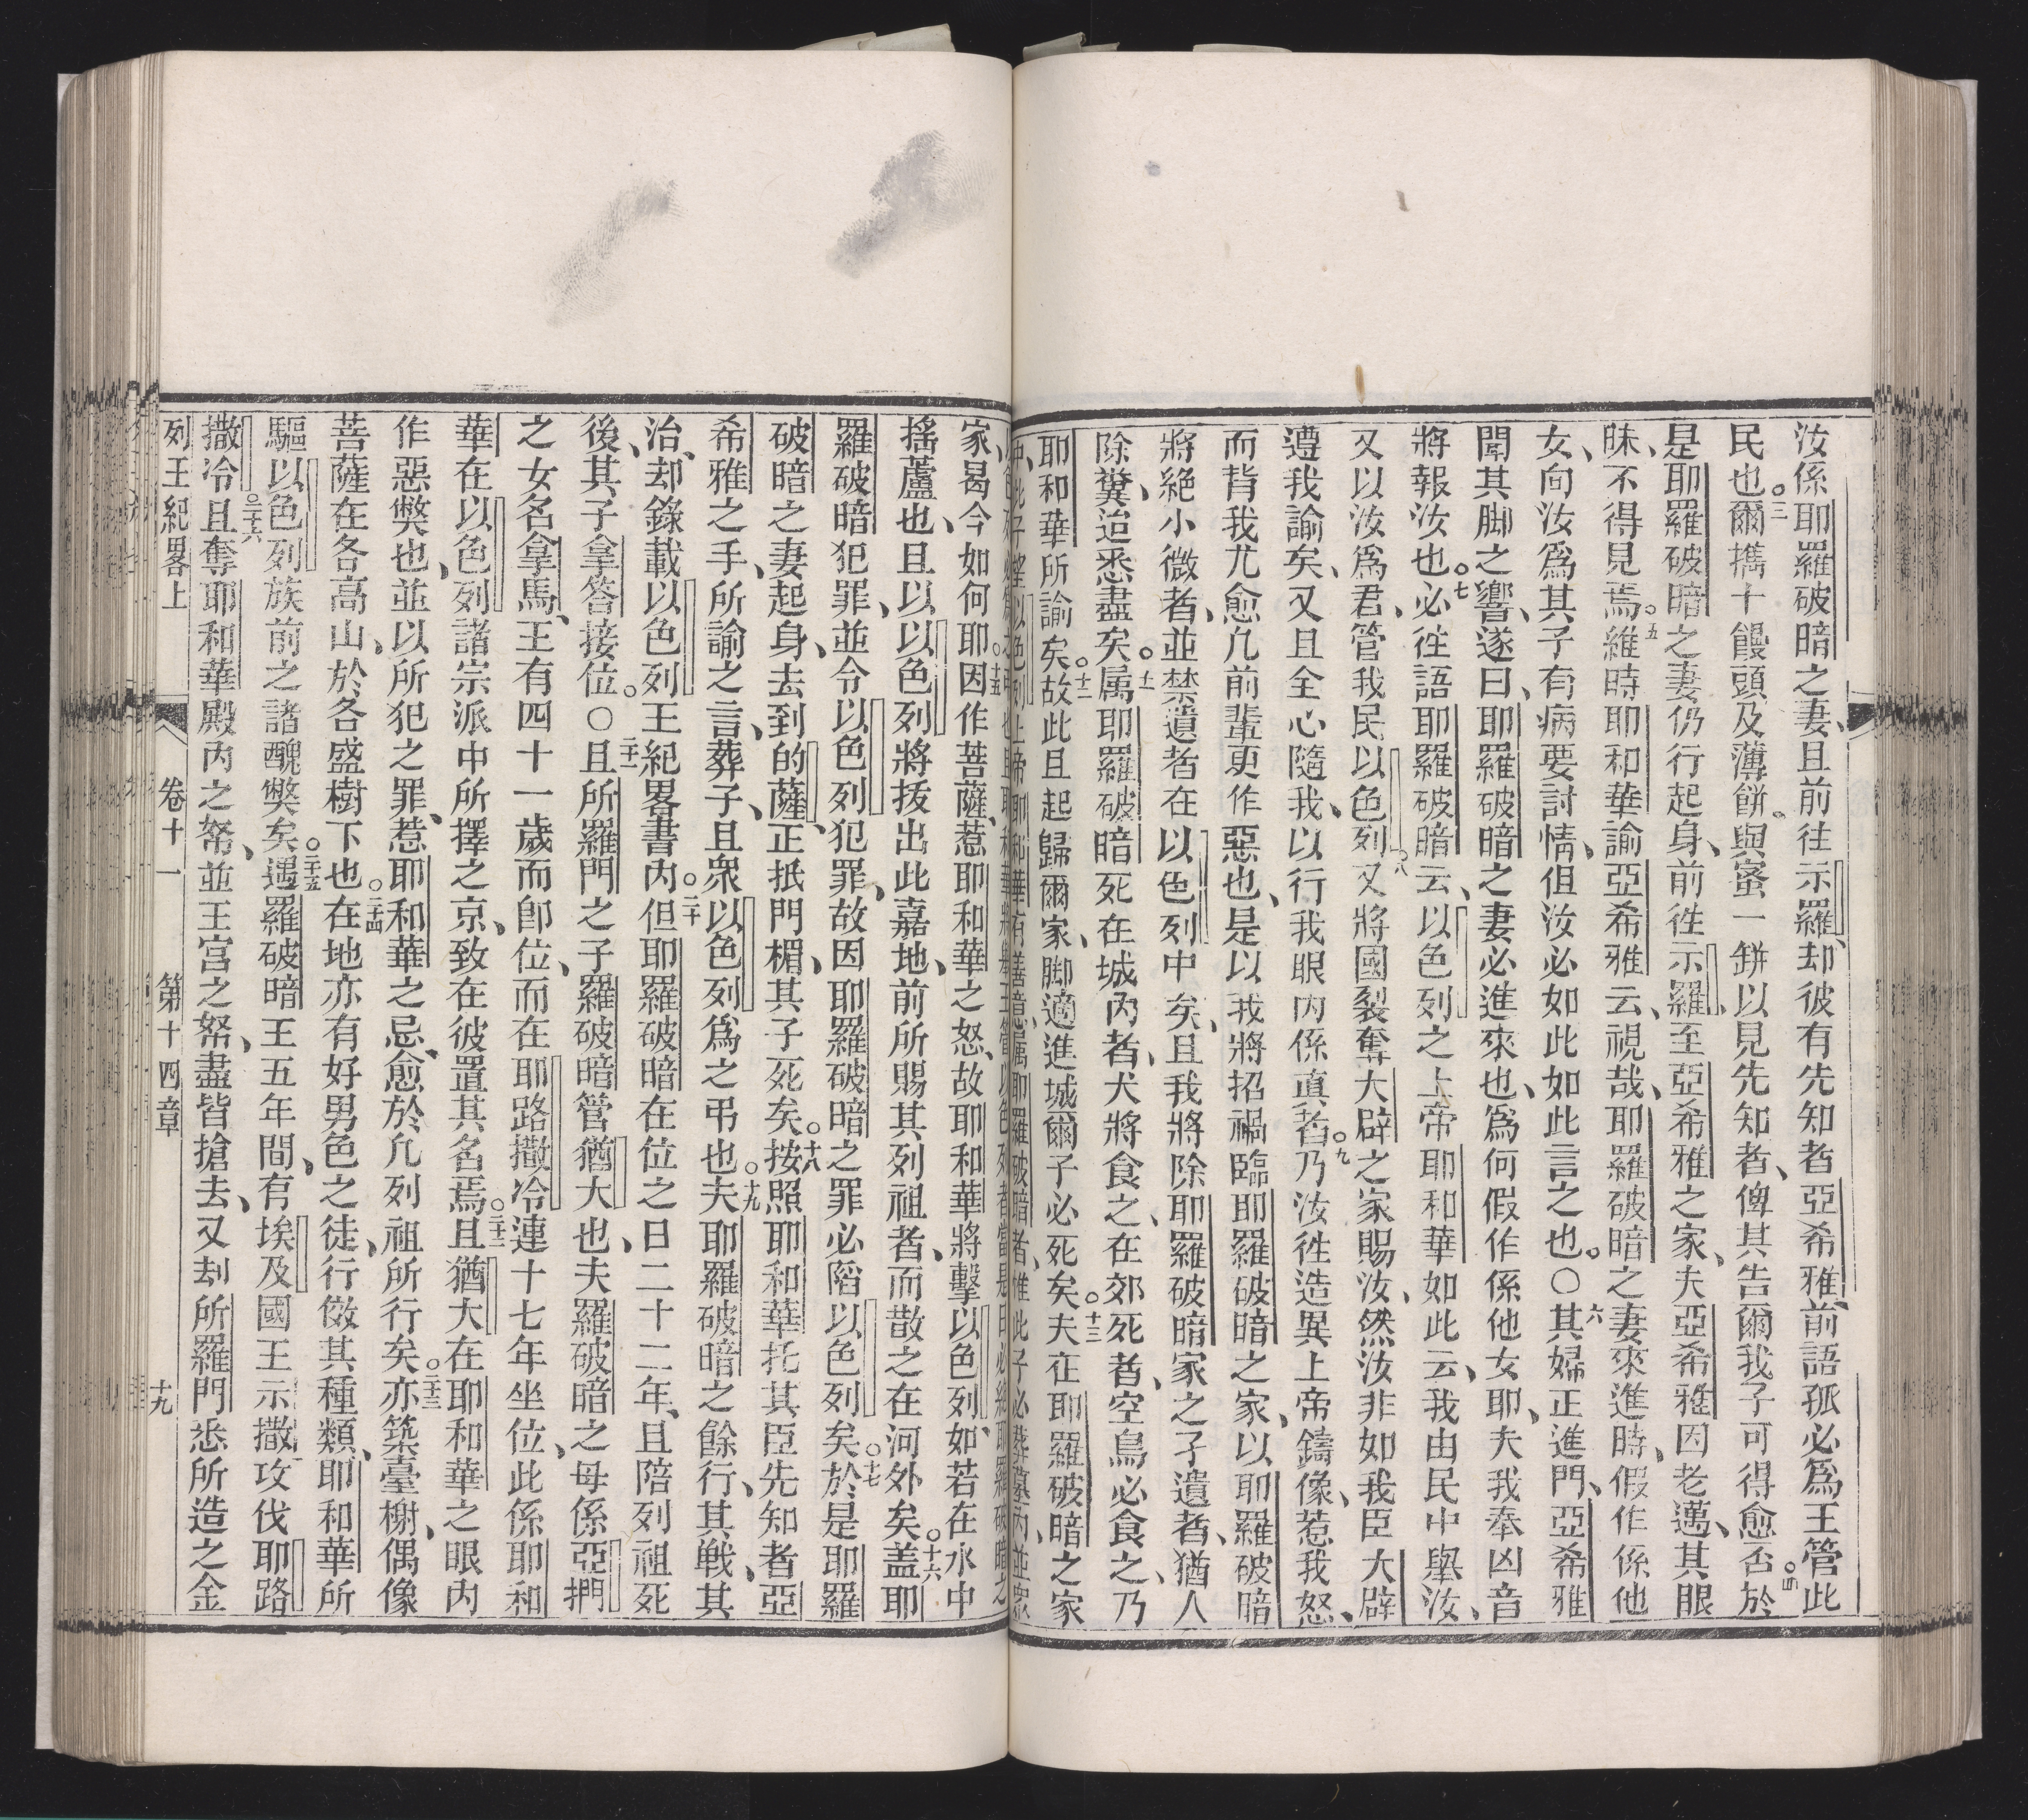 汝係耶羅破暗之妻、且前往示羅、却彼有先知者亞希雅、前語孤必爲王管此
民也。三爾攜十饅頭及薄餅與蜜一缾以見先知者、俾其告爾我子可得愈否。四於
是耶羅破暗之妻仍行起身、前徃示羅、至亞希雅之家、夫亞希雅因老邁、其眼
昧、不得見焉。五維時耶和華諭亞希雅云、視哉、耶羅破暗之妻來進時、假作係他
女、向汝爲其子有病要討情、但汝必如此如此言之也。○六其婦正進門、亞希雅
聞其脚之響、遂曰、耶羅破暗之妻必進來也、爲何假作係他女耶、夫我奉凶音
將報汝也。七必徃語耶羅破暗云、以色列之上帝耶和華如此云、我由民中舉汝、
又以汝爲君、管我民以色列。八又將國裂奪大辟之家賜汝、然汝非如我臣大辟
遵我諭矣、又且全心隨我、以行我眼内係真者。九乃汝徃造異上帝鑄像、惹我怒、
而背我尤愈凢前輩更作惡也、是以我將招禍臨耶羅破暗之家、以耶羅破暗
將絕小微者、並禁遺者在以色列中矣、且我將除耶羅破暗家之孑遺者、猶人
除糞、迨悉盡矣。十一属耶羅破暗死在城内者、犬將食之、在郊死者、空鳥必食之、乃
耶和華所諭矣。十二故此且起歸爾家、脚適進城爾子必死矣。十三夫在耶羅破暗之家
家、曷今如何耶。十五因作菩薩、惹耶和華之怒、故耶和華將擊以色列、如若在水中
搖蘆也、且以以色列將拔出此嘉地、前所賜其列祖者、而散之在河外矣。十六盖耶
羅破暗犯罪、並令以色列犯罪、故因耶羅破暗之罪必陷以色列矣。十七於是耶羅
破暗之妻起身、去到的薩、正抵門楣、其子死矣。十八按照耶和華托其臣先知者亞
希雅之手、所諭之言、葬子、且衆以色列爲之弔也。十九夫耶羅破暗之餘行、其戦、其
治、却錄載以色列王紀畧書内。二十但耶羅破暗在位之日二十二年、且陪列祖死
後、其子拿答接位。○二十一且所羅門之子羅破暗管猶大也、夫羅破暗之母係亞捫
之女名拿馬、王有四十一歲而卽位、而在耶路撒冷連十七年坐位、此係耶和
華在以色列諸宗派中所擇之京、致在彼置其名焉。二十二且猶大在耶和華之眼内
作惡獘也、並以所犯之罪、惹耶和華之忌、愈於凢列祖所行矣。二十三亦築臺榭、偶像
菩薩在各高山、於各盛樹下也。二十四在地亦有好男色之徒、行傚其種類、耶和華所
驅以色列族前之諸醜獘矣。二十五遇羅破暗王五年間、有埃及國王示撒攻伐耶路
撒冷。二十六且奪耶和華殿内之帑、並王宮之帑、盡皆搶去、又刦所羅門悉所造之金
列王紀畧上 卷十一 第十四章 十九